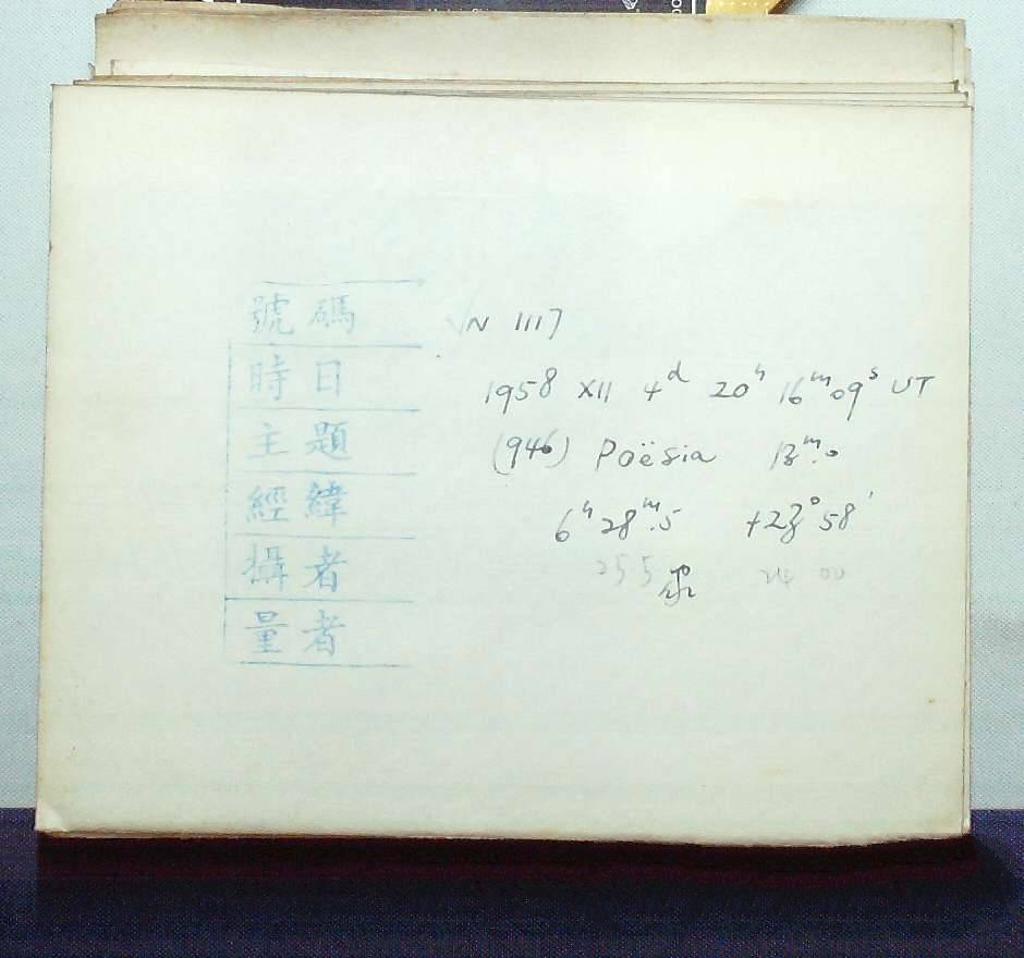 號碼 N 1117
時日 1958 XII 4ᵈ 20ʰ 16ᵐ 09ˢ UT
主題 (946) Poësia 13ᵐ.0
經緯 6ʰ 28ᵐ.5 +23° 58'
攝者 255 24 00
量者